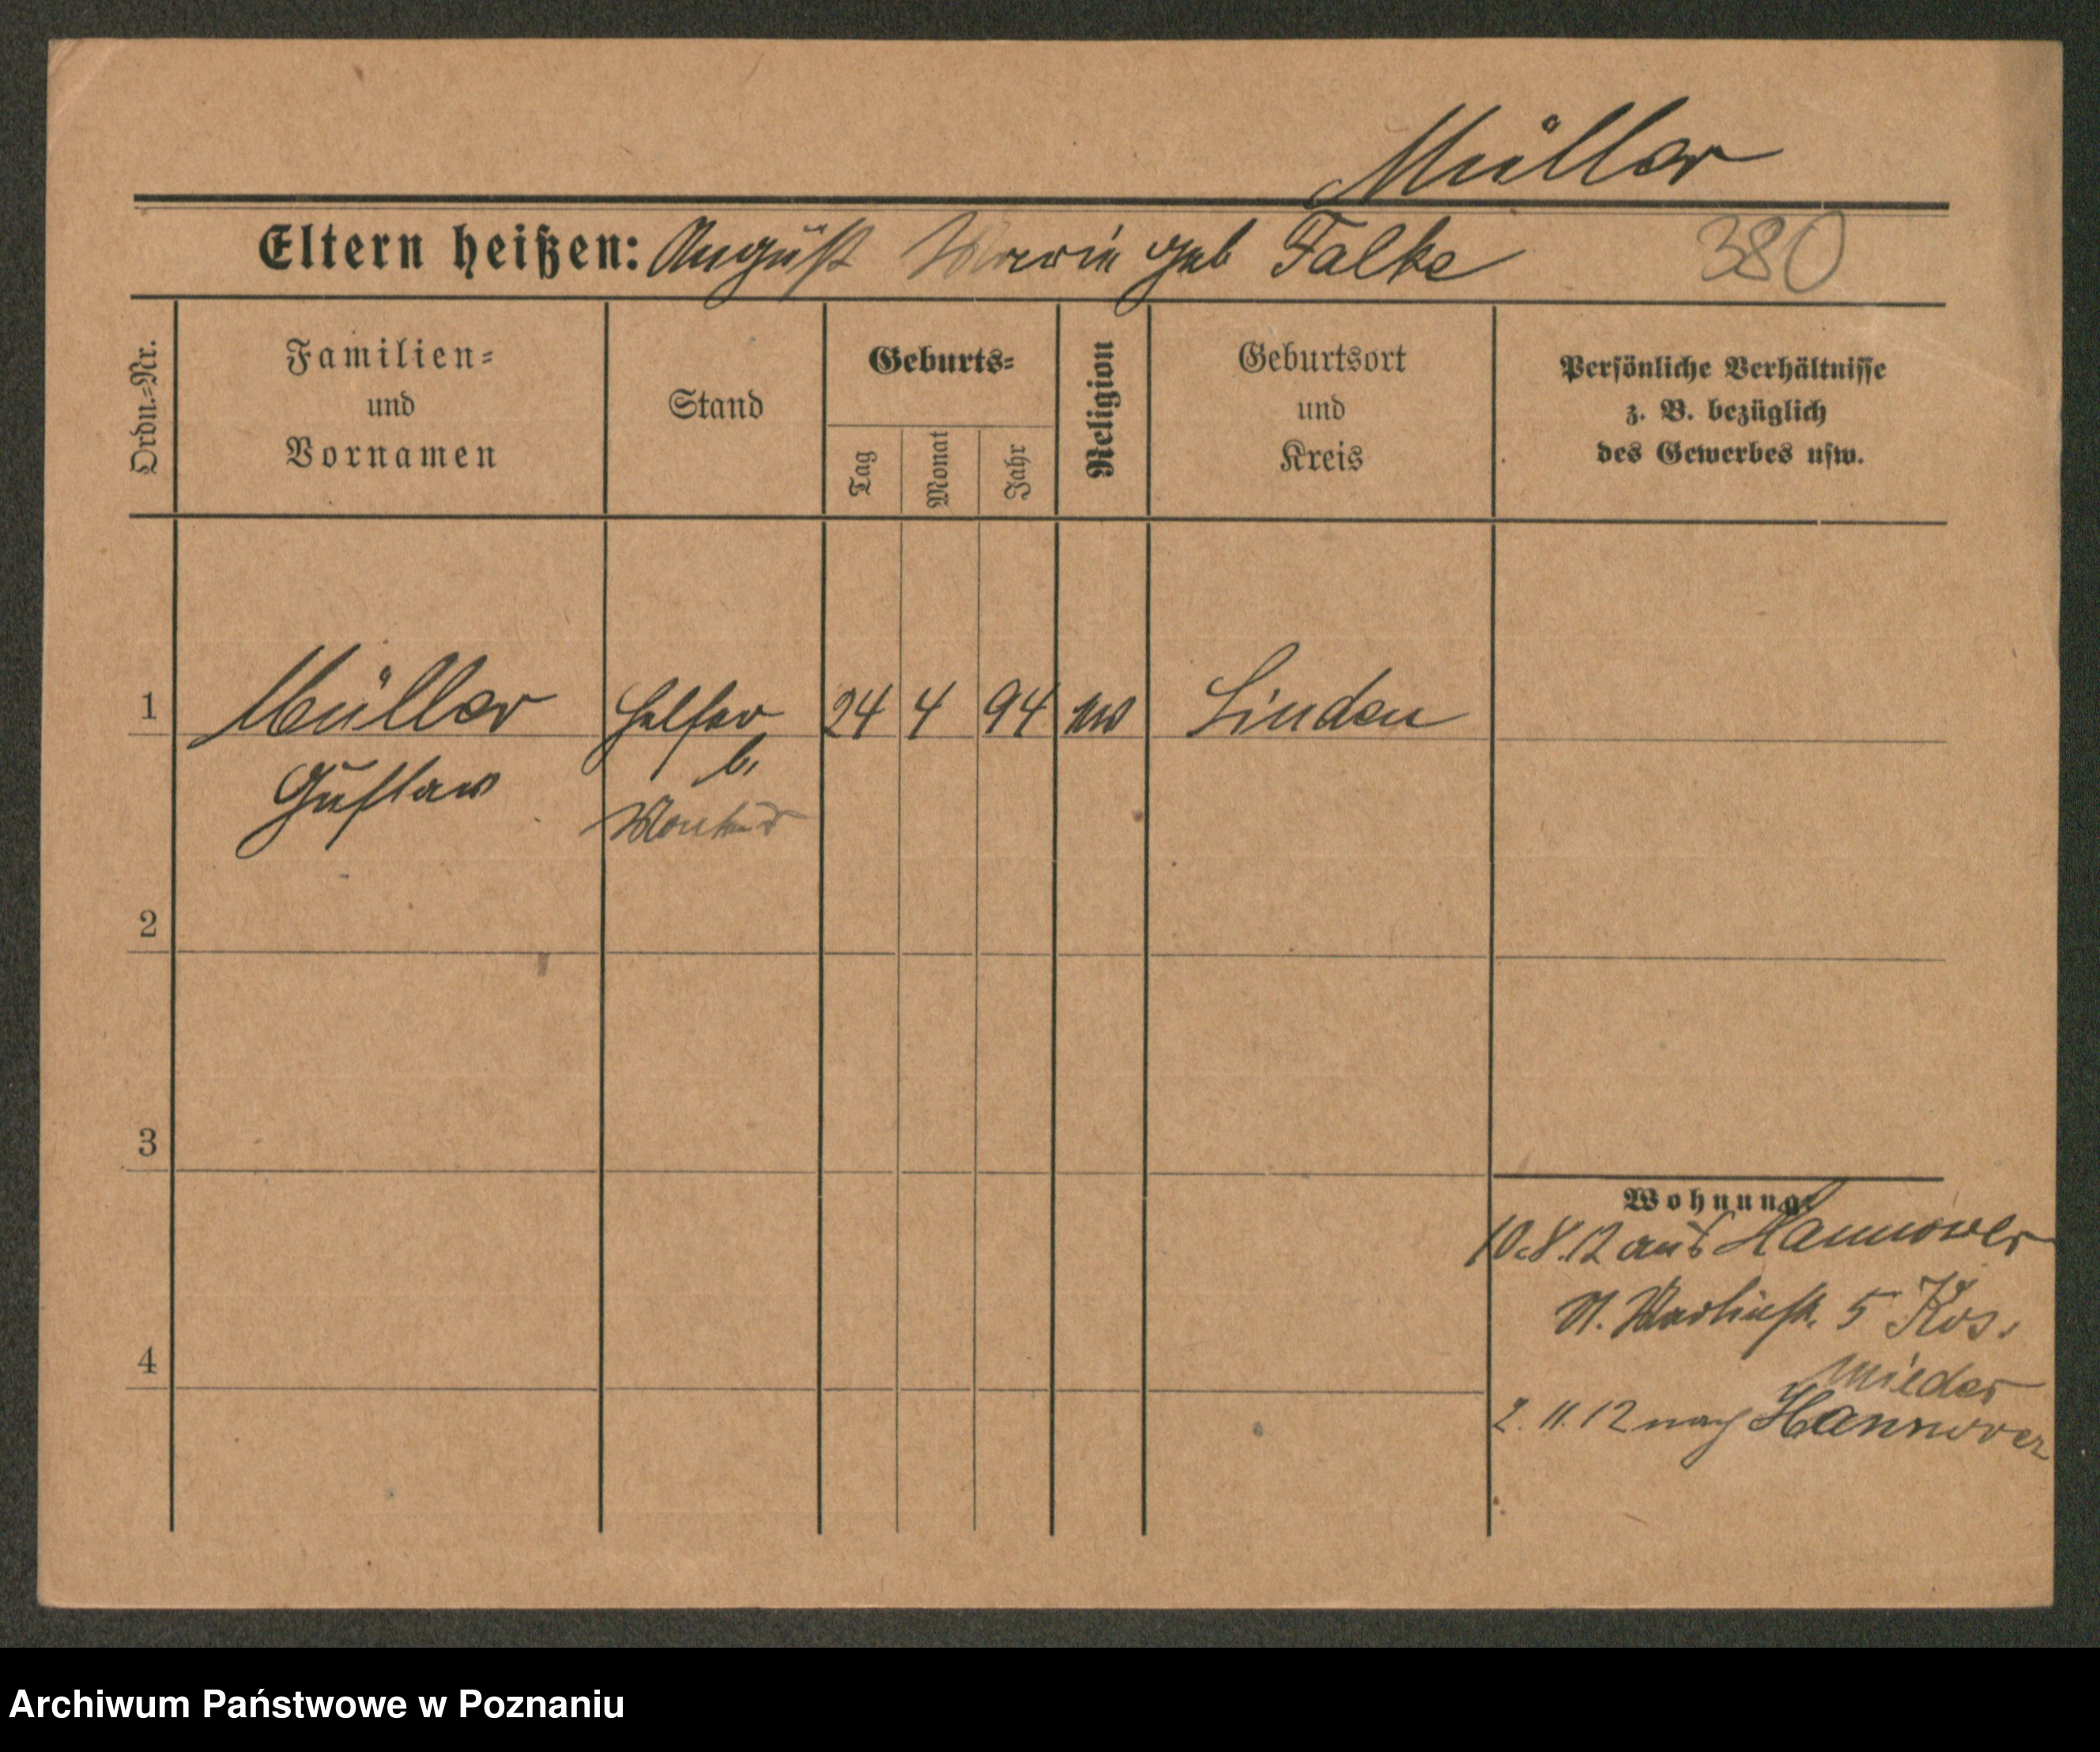 Müller
Eltern heißen: August Marie geb Falke 380
Ordn.=Nr.
Familien=
und
Vornamen
Stand
Geburts=
Tag
Monat
Jahr
Religion
Geburtsort
und
Kreis
Persönliche Verhältnisse
z. B. bezüglich
des Gewerbes usw.
1 Müller Helfer 24 4 94 Linden
Gustav b.
Monteur
2
3
4
Wohnung
10.8.12 aus Hannover
5 Kos.
Mieder
2.11.12 nach Hannover
Archiwum Państwowe w Poznaniu